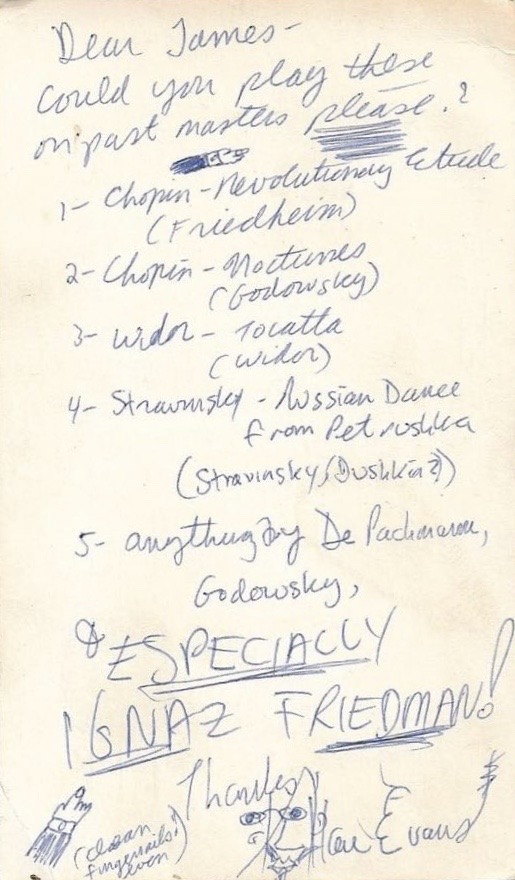 Dear James -
Could you play these
on past masters please?
1- Chopin - Revolutionary Etude
(Friedheim)
2- Chopin - Nocturnes
(Godowsky)
3- Widor - Tocatta
(Widor)
4- Stravinsky - Russian Dance
from Petrushka
(Stravinsky, (Dushkin?))
5- anything by De Pachmann,
Godowsky,
& ESPECIALLY
IGNAZ FRIEDMAN!
Thanks
Evans
(clean
fingernails!
even)